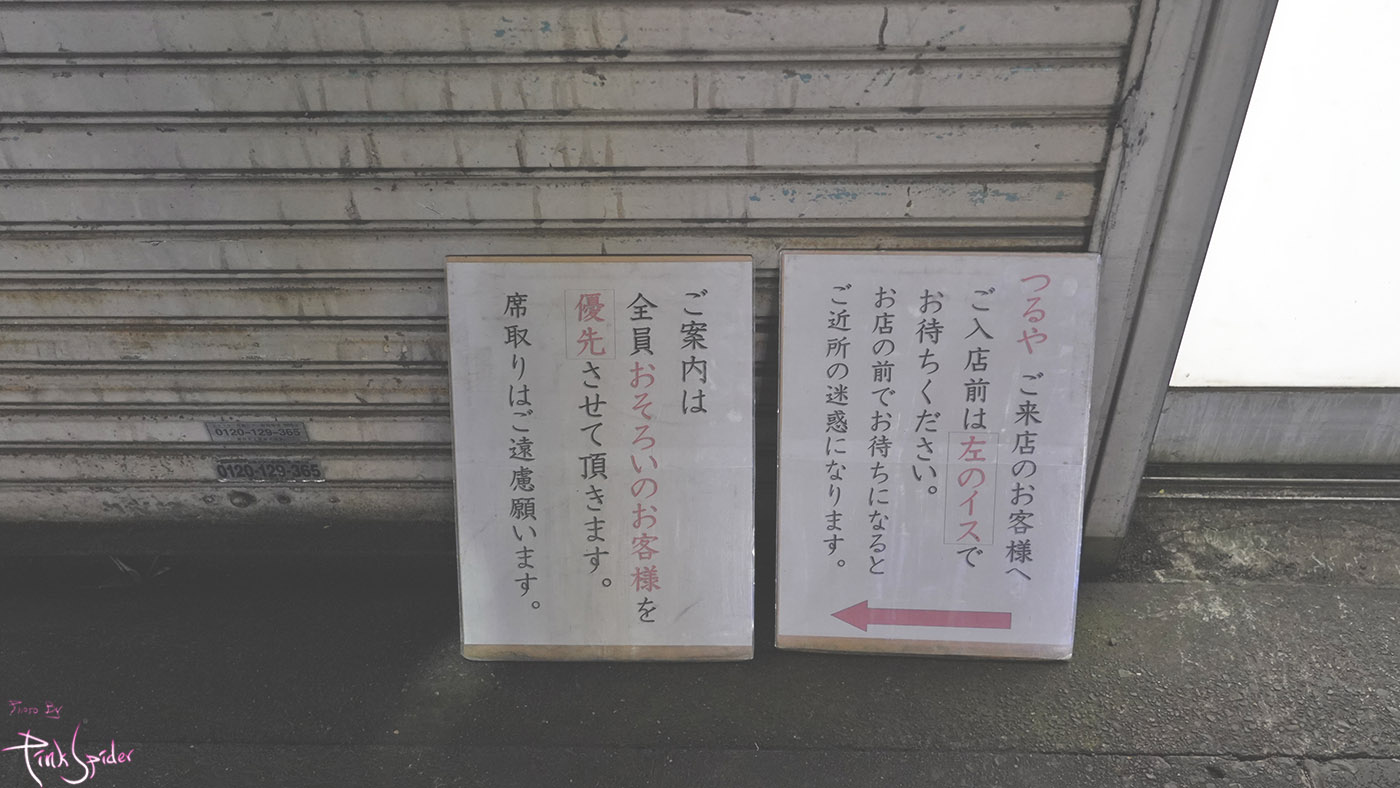 つるや ご来店のお客様へ
ご入店前は左のイスで
お待ちください。
お店の前でお待ちになると
ご近所の迷惑になります。
ご案内は
全員おそろいのお客様を
優先させて頂きます。
席取りはご遠慮願います。
0120-129-365
0120-129-365
Photo By
PinkSpider